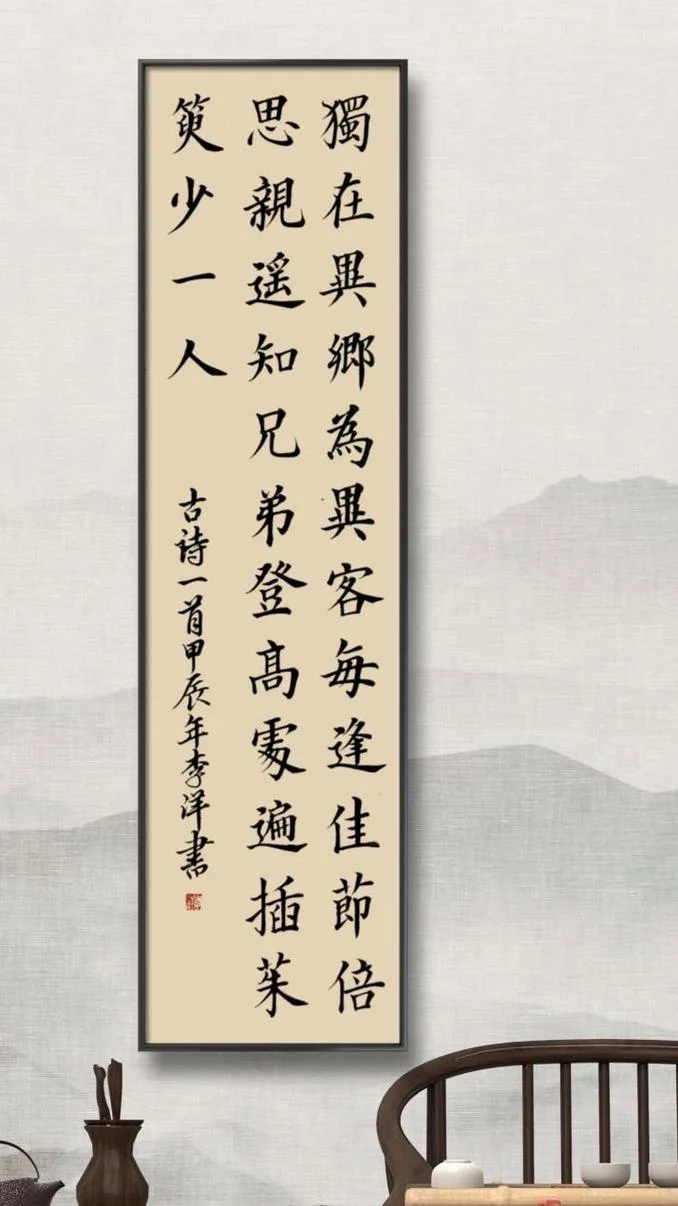 獨在異鄉為異客每逢佳節倍
思親遥知兄弟登髙處遍插茱
萸少一人
古诗一首甲辰年李洋書